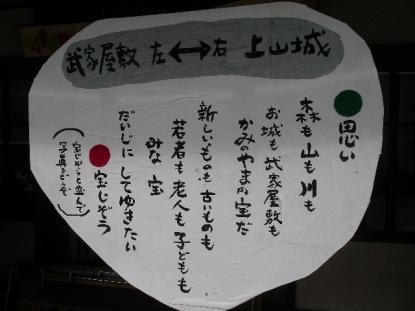 武家屋敷 左⟷右 上山城
思い
森も 山も 川も
お城も 武家屋敷も
かみのやまの宝だ
新しいものも 古いものも
若者も 老人も 子どもも
みな 宝
だいじに してゆきたい
宝じぞう
(宝じぞうと並んで
写真をどうぞ)